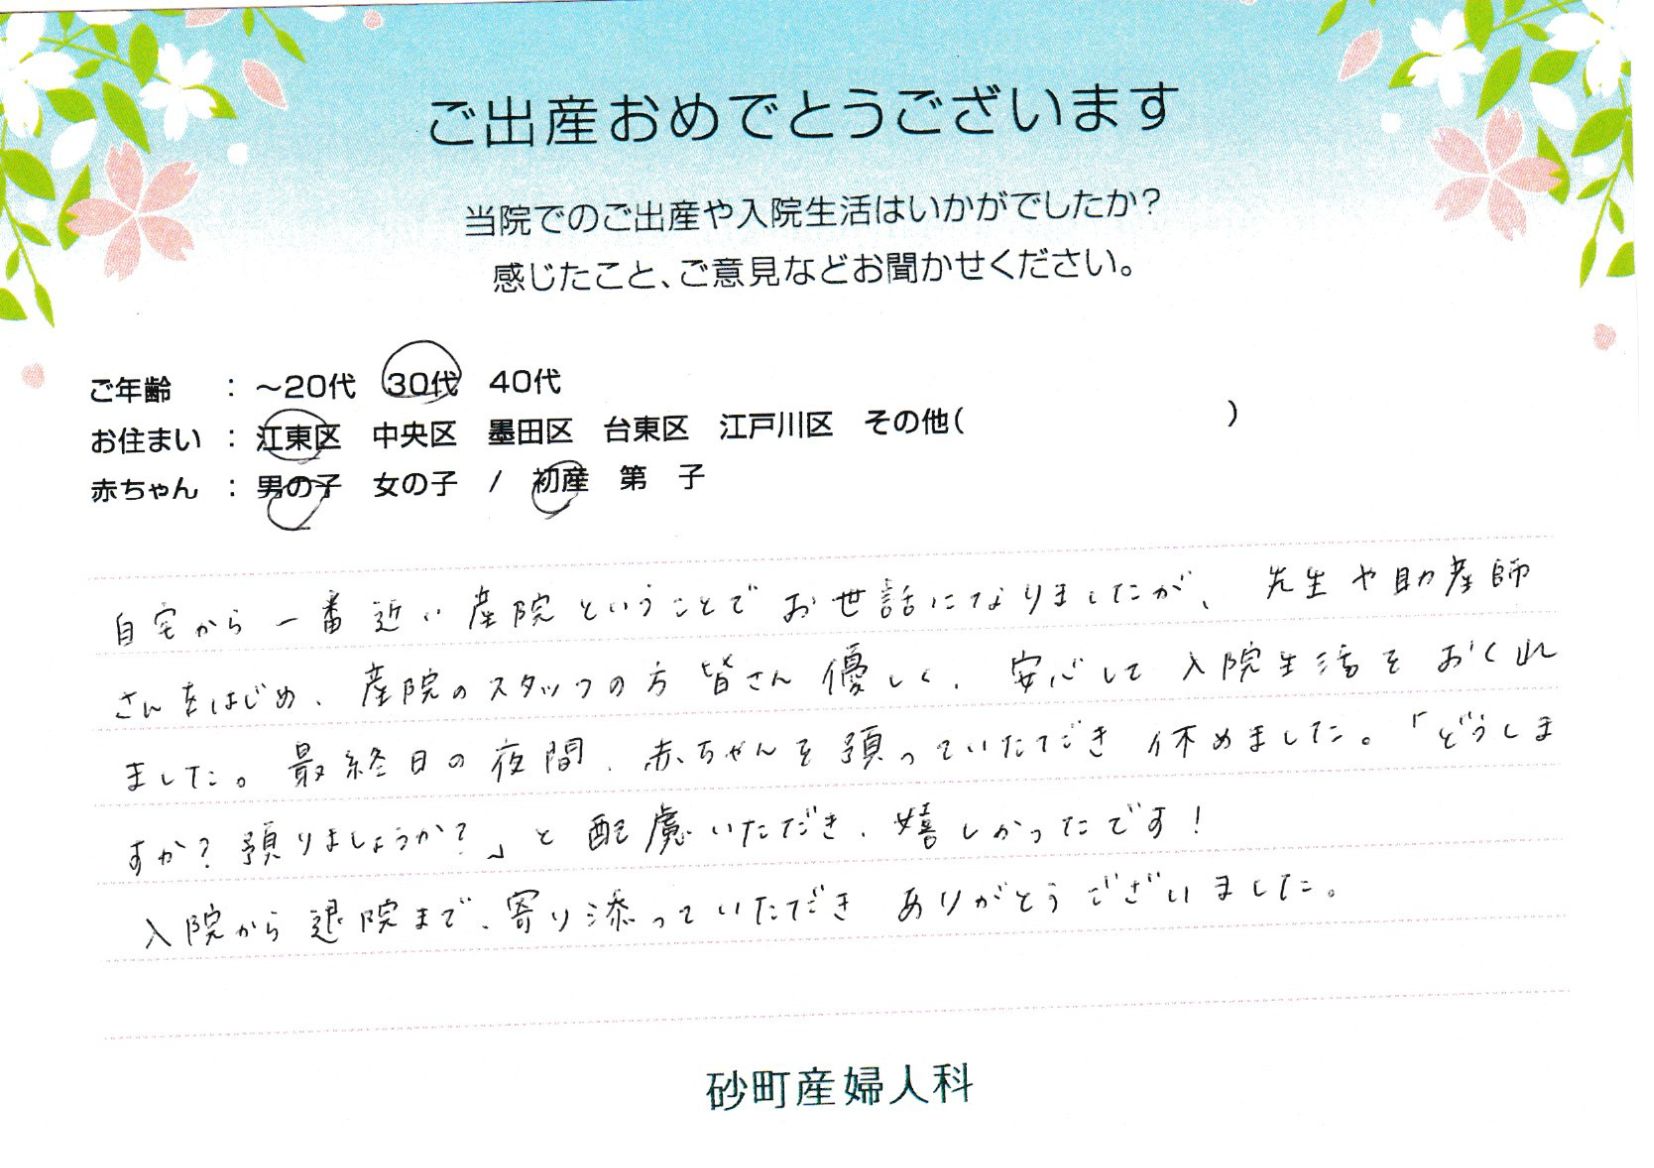 ご出産おめでとうございます
当院でのご出産や入院生活はいかがでしたか?
感じたこと、ご意見などお聞かせください。
ご年齢 : ～20代 30代 40代
お住まい : 江東区 中央区 墨田区 台東区 江戸川区 その他( )
赤ちゃん : 男の子 女の子 / 初産 第 子
自宅から一番近い産院ということでお世話になりましたが、先生や助産師
さんをはじめ、産院のスタッフの方皆さん優しく、安心して入院生活をおくれ
ました。最終日の夜間、赤ちゃんを預っていただき休めました。「どうしま
すか?預りましょうか?」と配慮いただき、嬉しかったです!
入院から退院まで、寄り添っていただきありがとうございました。
砂町産婦人科